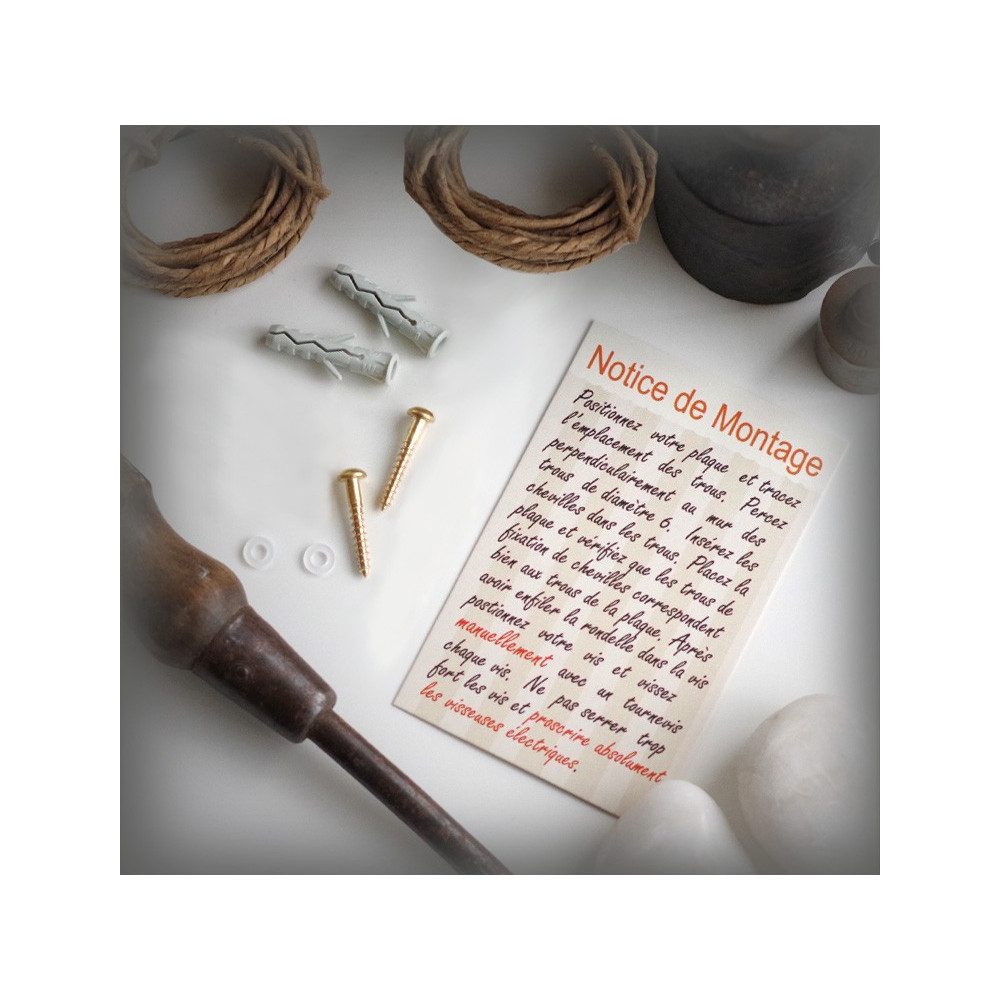 Notice de Montage
Positionnez votre plaque et tracez
l'emplacement des trous. Percez
perpendiculairement au mur des
trous de diamètre 6. Insérez les
chevilles dans les trous. Placez la
plaque et vérifiez que les trous de
fixation de chevilles correspondent
bien aux trous de la plaque. Après
avoir enfiler la rondelle dans la vis
postionnez votre vis et vissez
manuellement avec un tournevis
chaque vis. Ne pas serrer trop
fort les vis et proscrire absolument
les visseuses électriques.